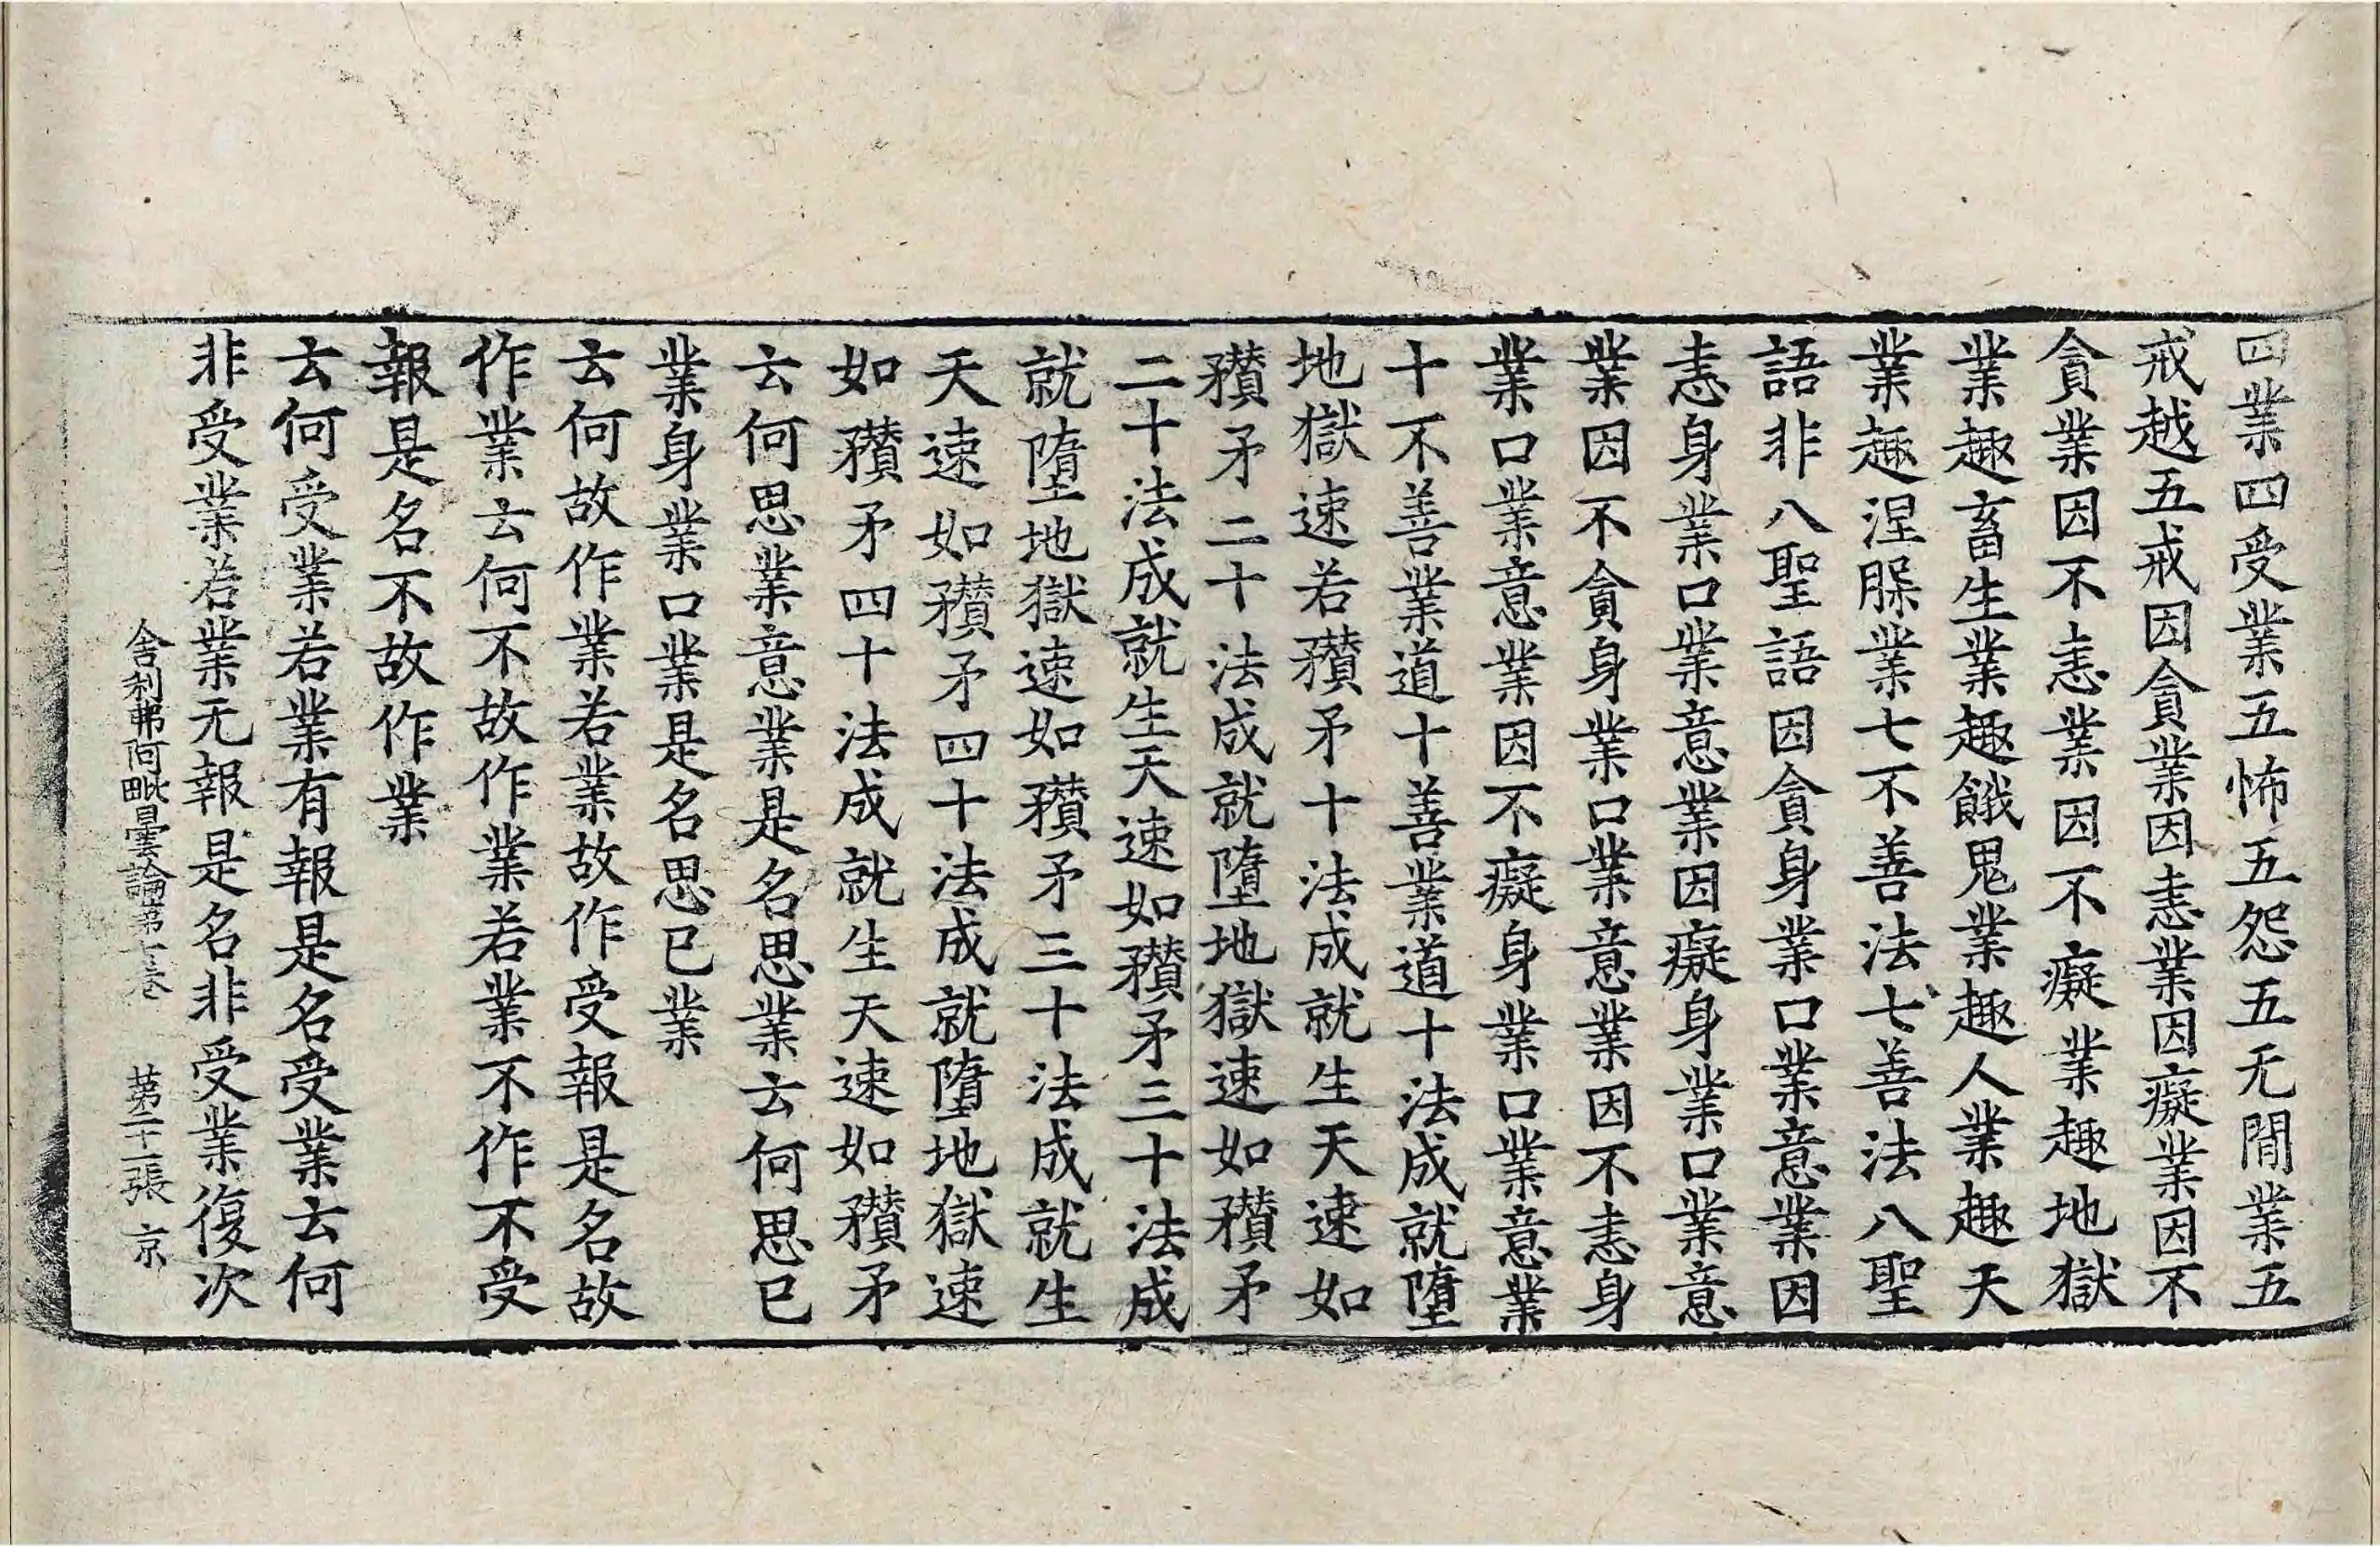 四業四受業五怖五怨五无間業五
戒越五戒因貪業因恚業因癡業因不
貪業因不恚業因不癡業趣地獄
業趣畜生業趣餓鬼業趣人業趣天
業趣涅槃業七不善法七善法八聖
語非八聖語因貪身業口業意業因
恚身業口業意業因癡身業口業意
業因不貪身業口業意業因不恚身
業口業意業因不癡身業口業意業
十不善業道十善業道十法成就墮
地獄速若穳矛十法成就生天速如
穳矛二十法成就墮地獄速如穳矛
二十法成就生天速如穳矛三十法成
就墮地獄速如穳矛三十法成就生
天速如穳矛四十法成就墮地獄速
如穳矛四十法成就生天速如穳矛
云何思業意業是名思業云何思已
業身業口業是名思已業
云何故作業若業故作受報是名故
作業云何不故作業若業不作不受
報是名不故作業
云何受業若業有報是名受業云何
非受業若業无報是名非受業復次
舍利弗阿毗曇論第七卷 第二十一張 京